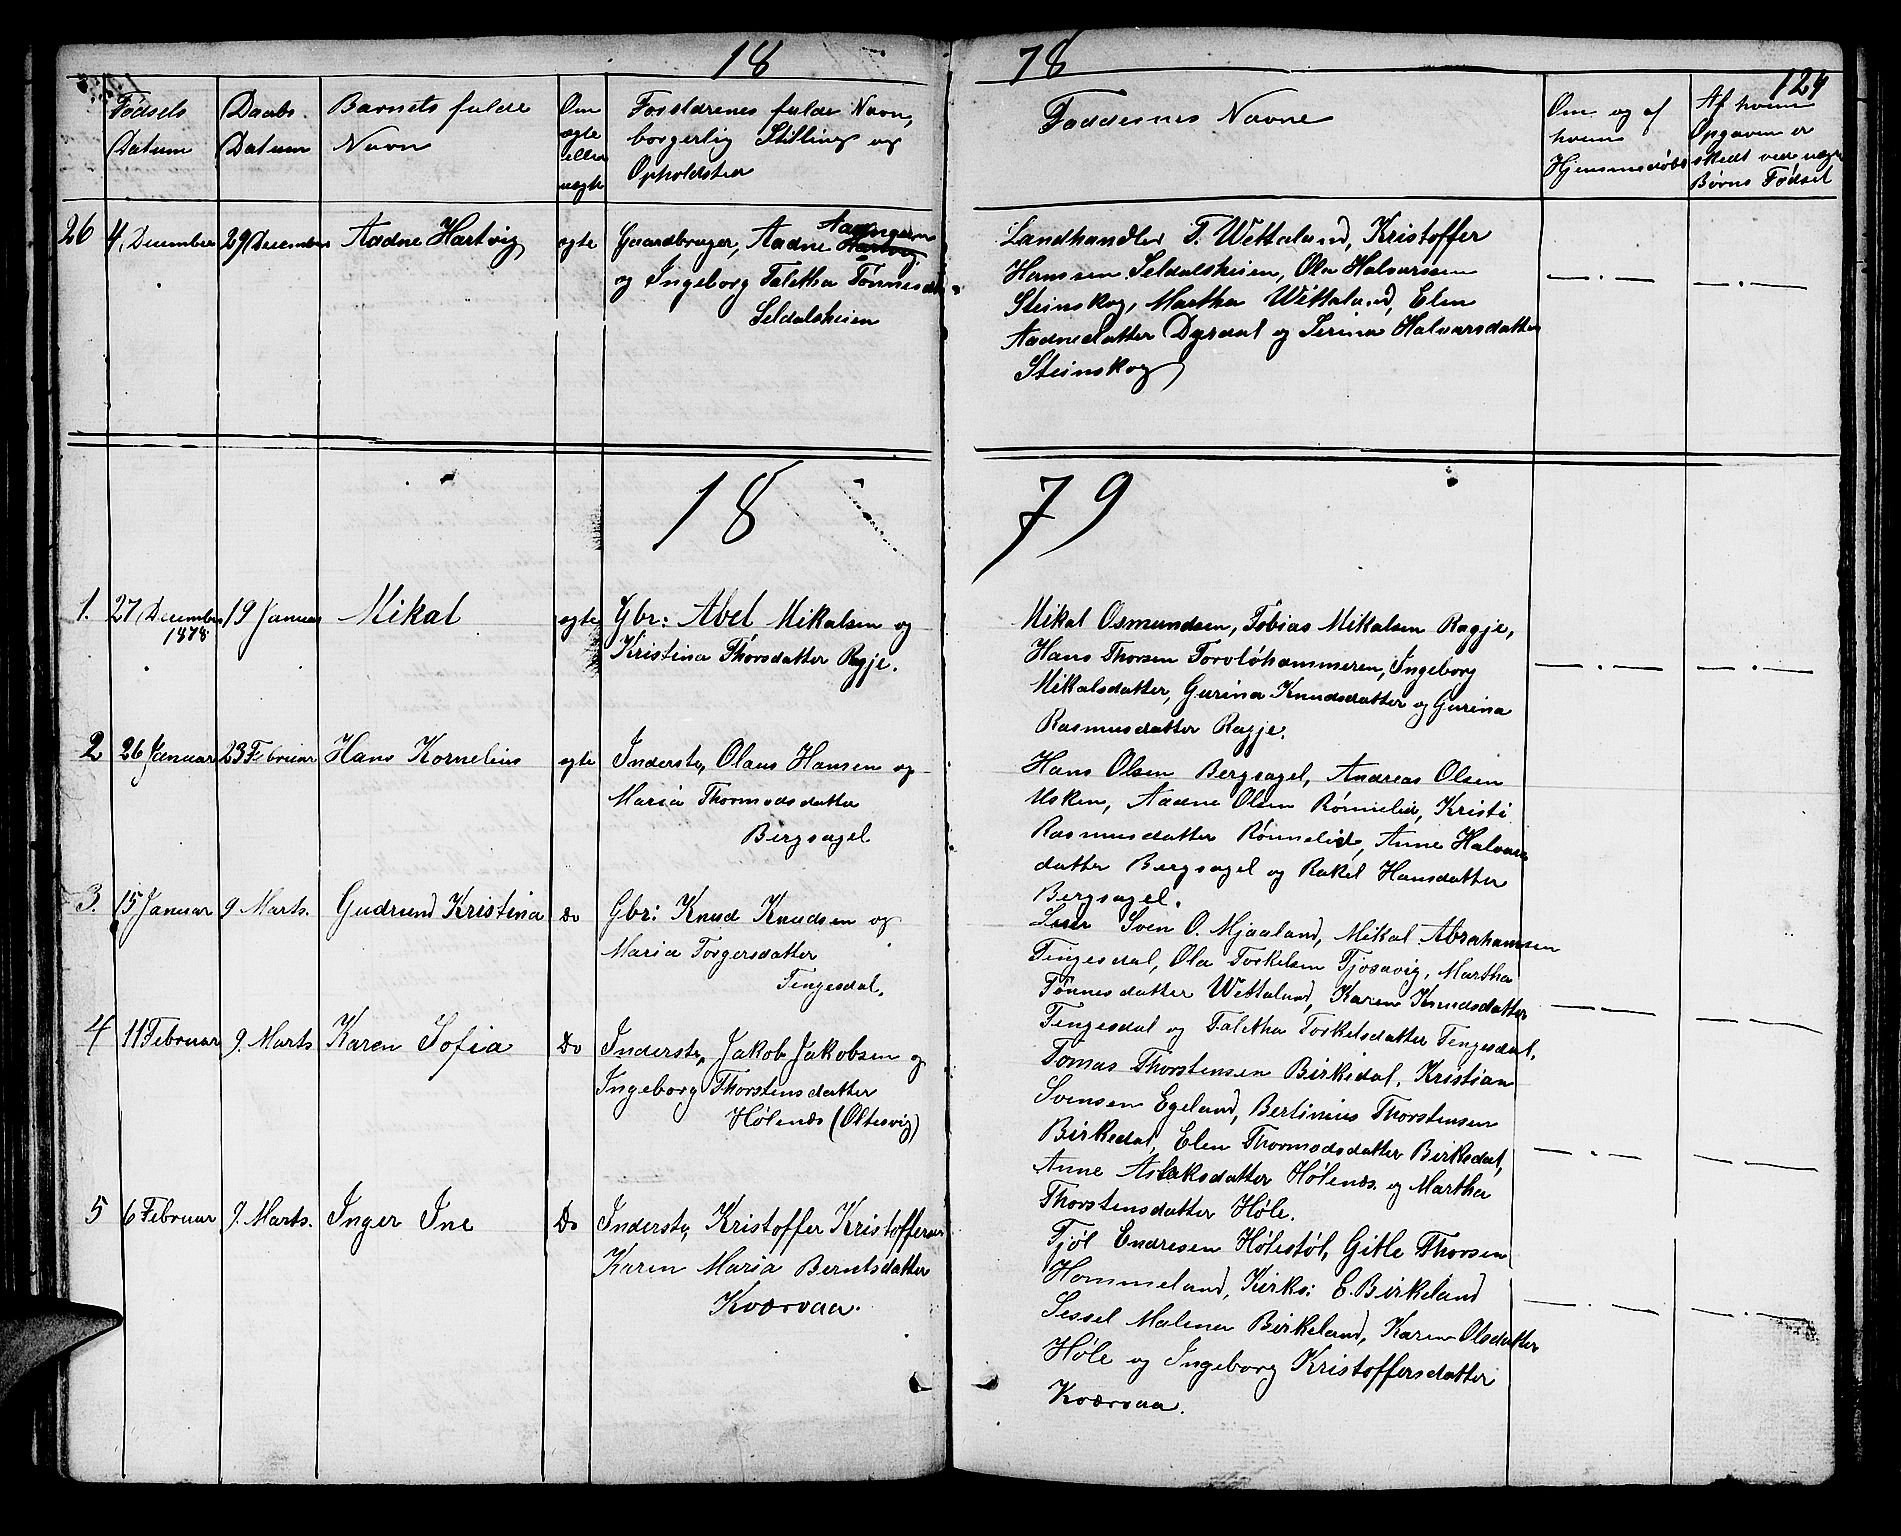 18 78
124
Fødsels Datum
Daabs Datum
Barnets fulde Navn
Om ægte eller uægte
Forældrenes fulde Navn, borgerlig Stilling og Opholdsted
Faddernes Navne
Om og af hvem Hjemmedøbt
Af hvem Opgaven er skedt ved uægte Børns Fødsel
26 4 December 29 December Aadne Hartvig ægte
Gaardbruger, Aadne Hartvig Aadnesen
og Ingeborg Taletha Tønnesdtr
Seldalsheien
Landhandler T. Wetteland, Kristoffer
Hansen Seldalsheien, Ola Halvorsen
Steinskog, Martha Wetteland, Elen
Aadnedatter Dyrdal og Serina Halvorsdatter
Steinskog
18 79
1. 27 December 1878 19 Januar Mikal ægte
Gbr: Abel Mikalsen og
Kristina Thorsdatter Ragje.
Mikal Osmundsen, Tobias Mikalsen Ragje,
Hans Thorsen Torvløhammeren, Ingeborg
Mikalsdatter, Gurina Knudsdatter og Gurina
Rasmusdatter Ragje.
2 26 Januar 23 Februar Hans Kornelius ægte
Inderste, Olaus Hansen og
Maria Thormodsdatter
Bergsagel
Hans Olsen Bergsagel, Andreas Olsen
Usken, Aadne Olsen Rønnelid, Kristi
Rasmusdatter Rønnelid, Anne Halvors
datter Bergsagel og Rakel Hansdatter
Bergsagel.
3. 15 Januar 9 Marts. Gudrund Kristina Do
Gbr: Knud Knudsen og
Maria Torgersdatter
Tengesdal.
Lærer Sven O. Mjaaland, Mikal Abrahamsen
Tengesdal, Ola Torkelsen Tjosavig, Martha
Tønnesdatter Wetteland, Karen Knudsdatter
Tengesdal og Taletha Torkelsdatter Tengesdal.
4 11 Februar 9. Marts Karen Sofia Do
Inderste, Jakob Jakobsen og
Ingeborg Thorstensdatter
Hølenæs (Oltesvig)
Tomas Thorstensen Birkedal, Kristian
Svensen Egeland, Bertinius Thorstensen
Birkedal, Elen Thormodsdatter Birkedal,
Anne Aslaksdatter Hølenæs og Martha
Thorstensdatter Høle.
5 6 Februar 9. Marts. Inger Ine Do
Inderste, Kristoffer Kristoffersen
Karen Maria Berntsdatter
Kværvaa.
Tjøl Endresen Hølestøl, Gitle Thorsen
Hommeland, Kirks: E. Birkeland
Sessel Malena Birkeland, Karen Olsdatter
Høle og Ingeborg Kristoffersdatter
Kværvaa.